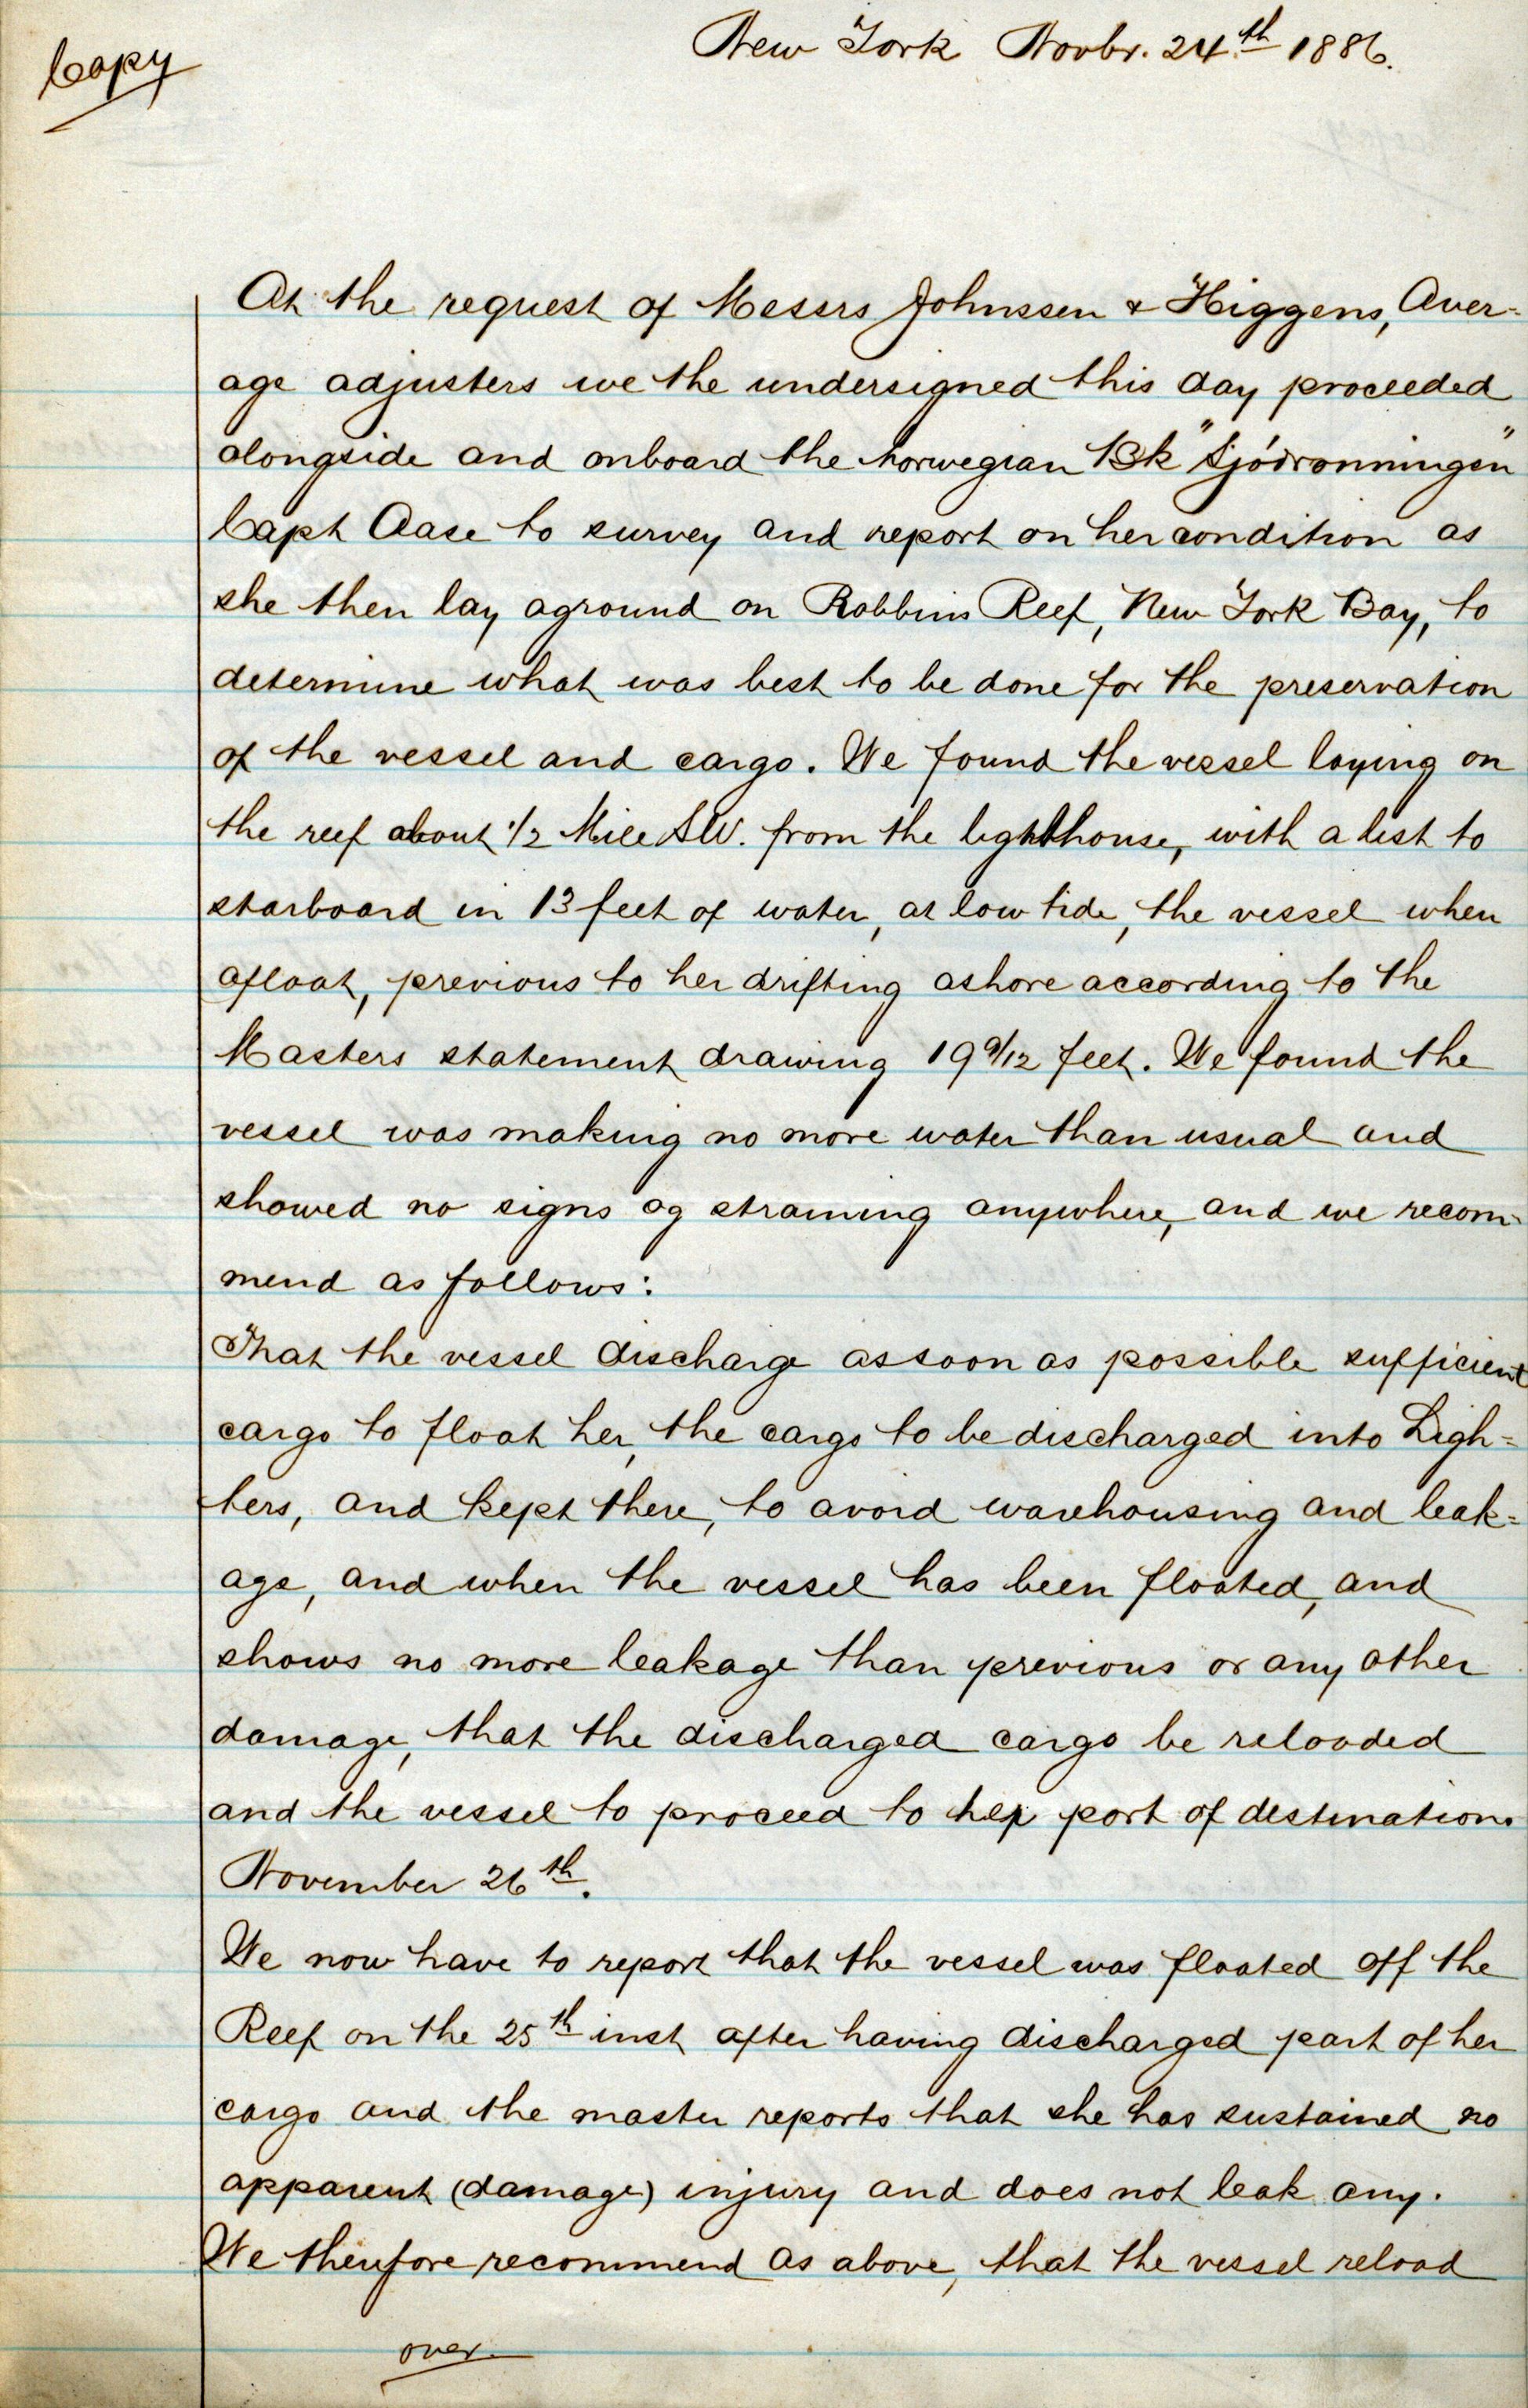 Copy
New York Novbr. 24th 1886.
At the request of Messrs Johnssen & Higgens, Aver=
age adjusters we the undersigned this day proceeded
alongside and onboard the norwegian Bk "Sjódronningen"
Capt Aase to survey and report on her condition as
she then lay aground on Robbins Reef, New York Bay, to
determine what was best to be done for the preservation
of the vessel and cargo. We found the vessel laying on
the reef about 1/2 Mile SW. from the lighthouse, with a list to
starboard in 13 feet of water, at low tide, the vessel when
afloat, previous to her drifting ashore according to the
Masters statement drawing 19 9/12 feet. We found the
vessel was making no more water than usual and
showed no signs og straining anywhere, and we recom-
mend as follows:
That the vessel discharge as soon as possible sufficient
cargo to float her, the cargo to be discharged into Ligh=
ters, and kept there, to avoid warehousing and leak=
age, and when the vessel has been floated, and
shows no more leakage than previous or any other
damage, that the discharged cargo be reloaded
and the vessel to proceed to her port of destination.
November 26th.
We now have to report that the vessel was floated off the
Reef on the 25th inst after having discharged part of her
cargo and the master reports that she has sustained no
apparent (damage) injury and does not leak any.
We therefore recommend as above, that the vessel reload
over.